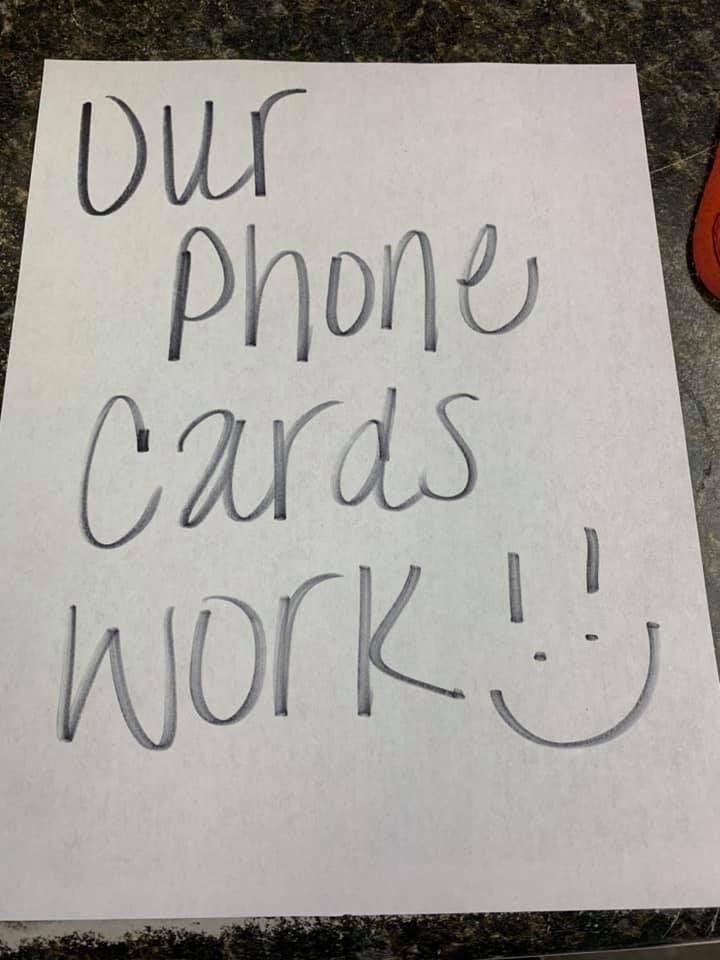 Our
Phone
Cards
Work!!